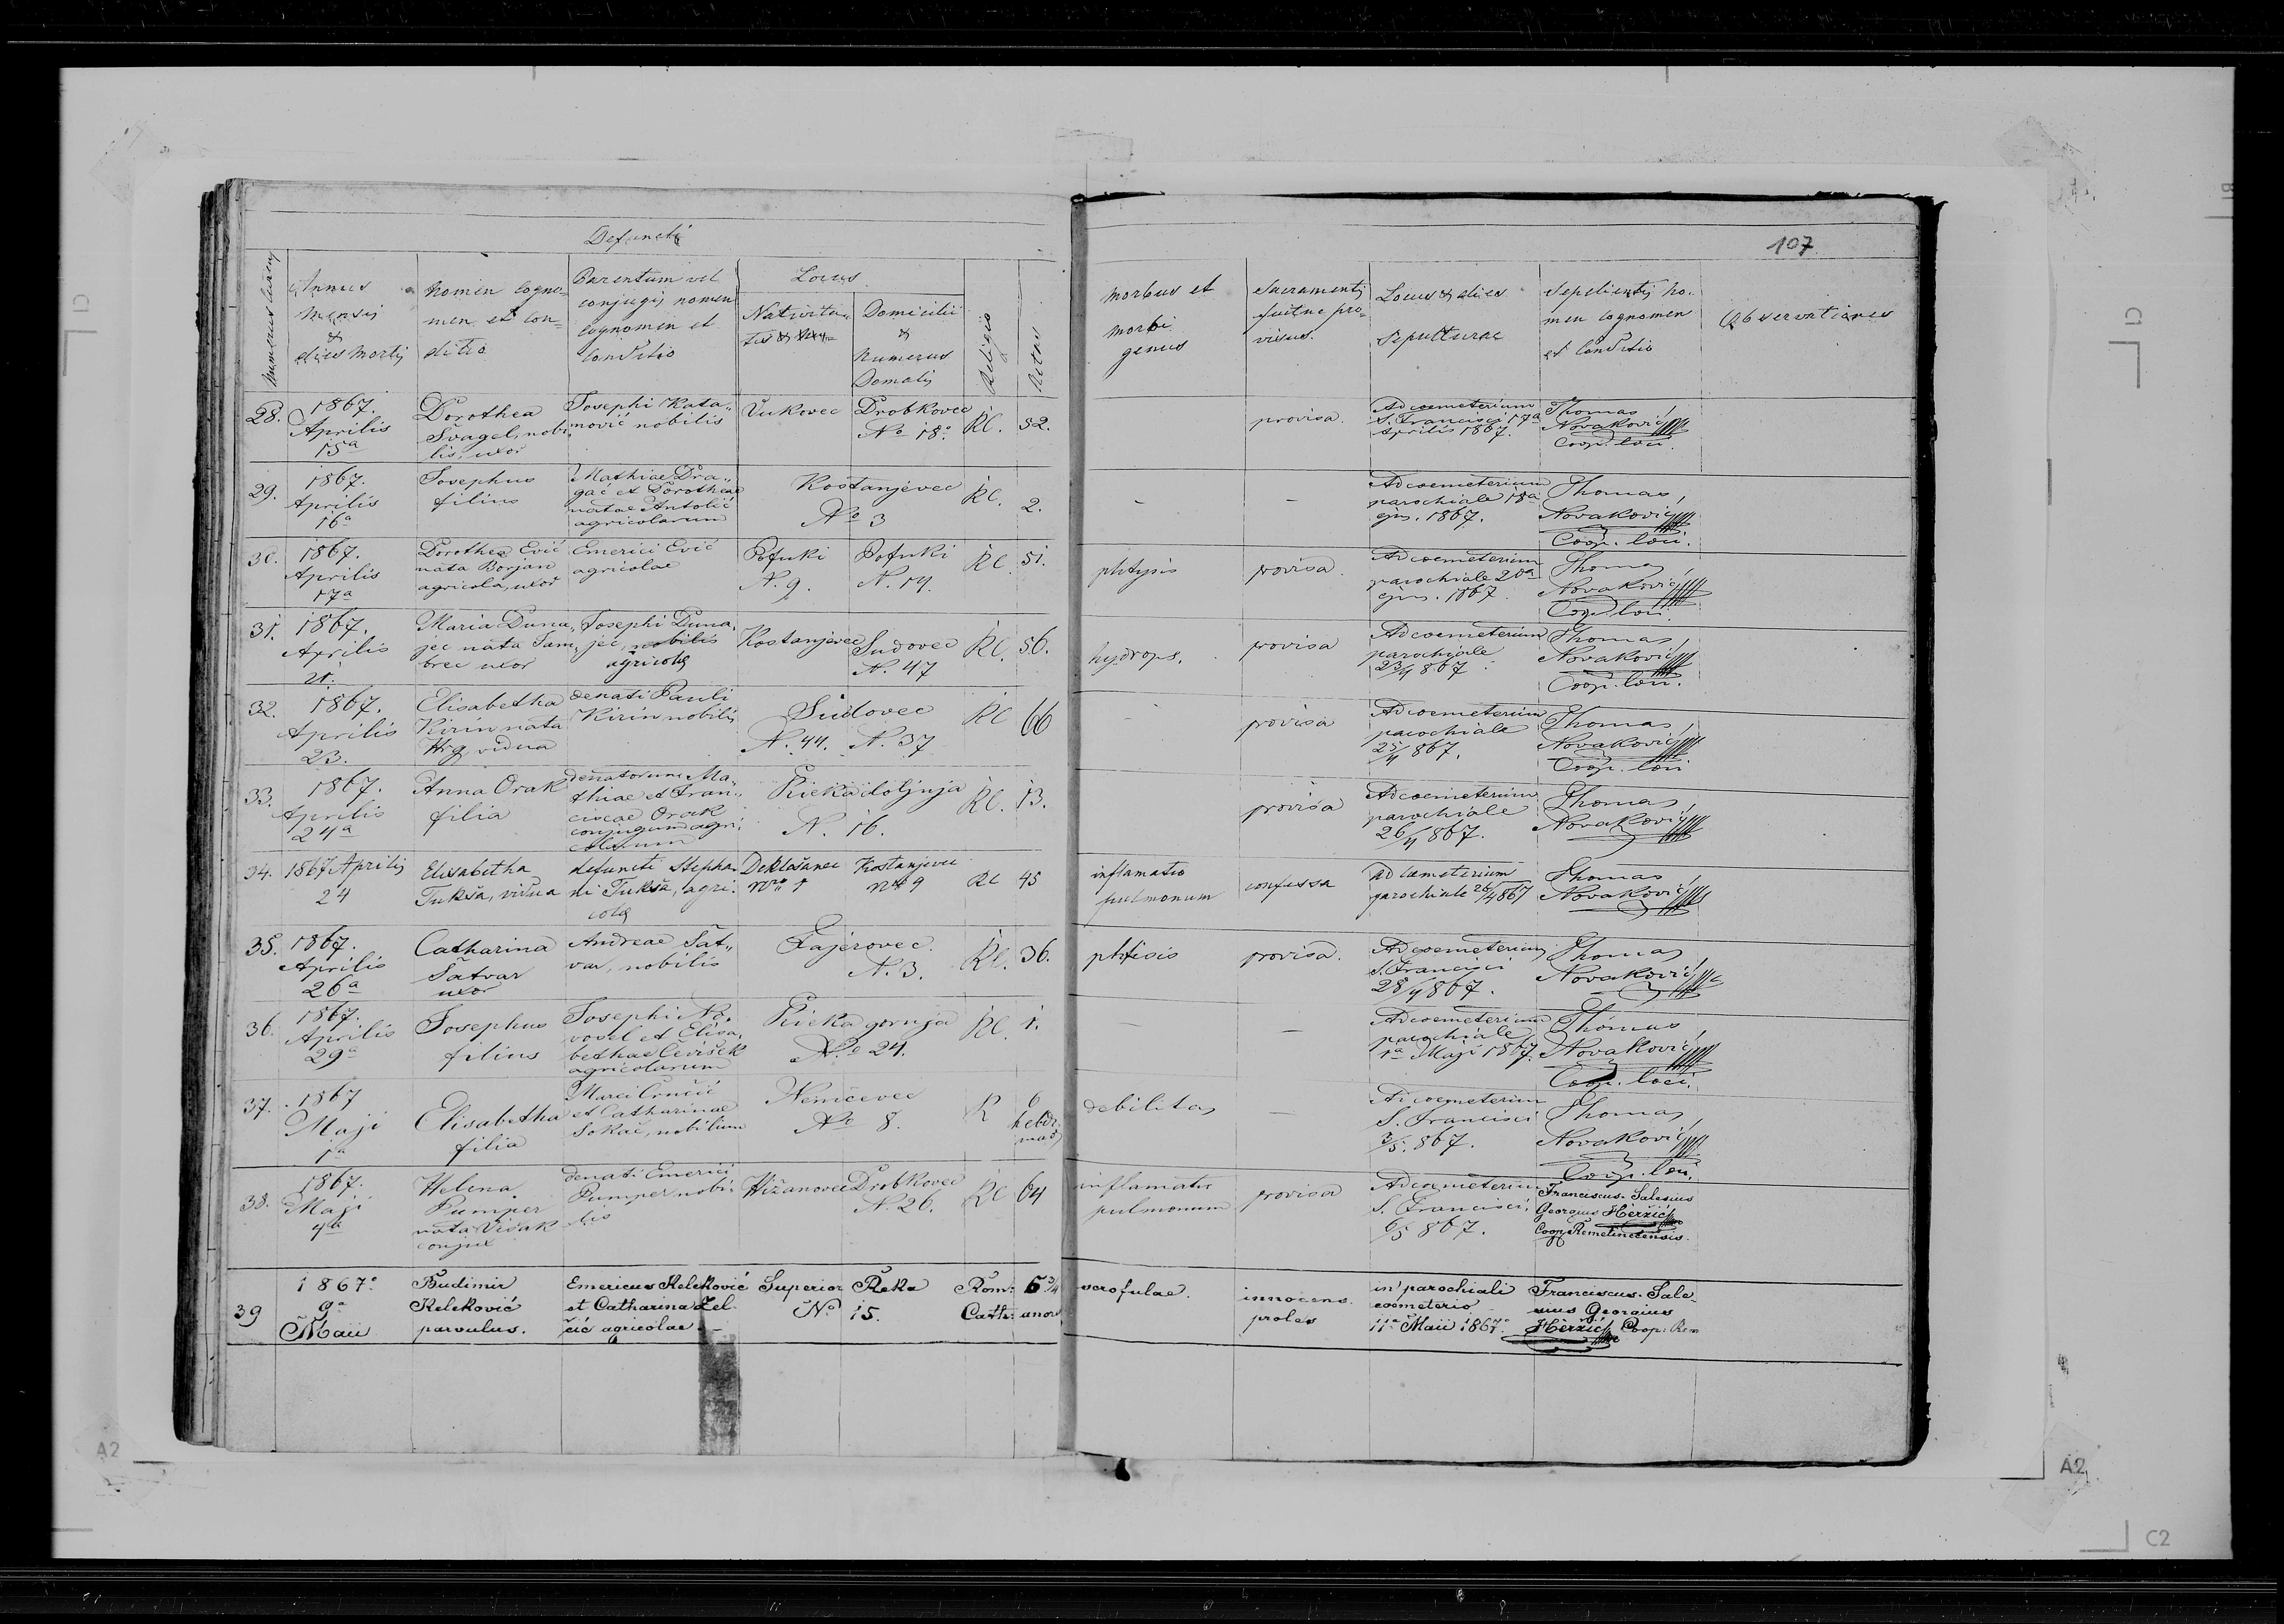 Defuncti
107
Numerus currens
Annus
Mensis
&
dies Mortis
Nomen cogno-
men et con-
ditio
Parentum vel
conjugis nomen
cognomen et
Conditio
Locus
Nativita-
tis &
Domicilii
&
Numerus
Domus
Religio
Aetas
Morbus et
morbi
genus
Sacramentis
fuitne pro-
visus.
Locus & dies
Sepulturae
Sepelientis no-
men cognomen
et Conditio
Observationes
28.
1867.
Aprilis
15a
Dorothea
Švagel, nobi-
lis, uxor
Josephi Kata-
nović nobilis
Vukovec
Drobkovec
No 18.
RC.
52.
provisa.
Ad coemeterium
S. Francisci 17a
Aprilis 1867.
Thomas
Novaković
Coop. loci.
29.
1867.
Aprilis
16a
Josephus
filius
Mathiae Dra-
gač et Dorotheae
natae Antolić
agricolarum
Kostanjevec
No 3
RC.
2.
-
-
Ad coemeterium
parochiale 18a
ejus. 1867.
Thomas
Novaković
Coop. loci.
30.
1867.
Aprilis
17a
Dorothea Ević
nata Borjan
agricola, uxor
Emerici Ević
agricolae
Pofuki
N. 9.
Pofuki
N. 14.
RC.
51.
phtysis
provisa.
Ad coemeterium
parochiale 20a
ejus. 1867.
Thomas
Novaković
Coop. loci.
31.
1867.
Aprilis
21.
Maria Duna-
jec nata Jam-
brec uxor
Josephi Duna-
jec, nobilis
agricola
Kostanjevec
Sudovec
N. 47
RC.
56.
hydrops.
provisa
Ad coemeterium
parochiale
23/4 867.
Thomas
Novaković
Coop. loci.
32.
1867.
Aprilis
23.
Elisabetha
Kirin nata
Hrg vidua
denati Pauli
Kirin nobilis
Sudovec
N. 44. N. 37
RC
66
-
provisa
Ad coemeterium
parochiale
25/4 867.
Thomas
Novaković
Coop. loci
33.
1867.
Aprilis
24a
Anna Orak
filia
denatorum Ma-
thiae et Fran-
ciscae Orak
conjugum agri-
colarum
Rieka doljnja
N. 16.
RC.
13.
provisa
Ad coemeterium
parochiale
26/4 867.
Thomas
Novaković
34.
1867 Aprilis
24
Elisabetha
Tukša, vidua
defuncti Stepha-
ni Tukša, agri-
cola
Deklešanec
Nro 1
Kostanjevec
Nro 9
RC
45
inflamatio
pulmonum
confessa
ad coemeterium
parochiale 26/4 867
Thomas
Novaković
35.
1867.
Aprilis
26a
Catharina
Šatvar
uxor
Andreae Šat-
var, nobilis
Fajerovec.
N. 3.
RC.
36.
phtisis
provisa.
Ad coemeterium
S. Francisci
28/4 867.
Thomas
Novaković
36.
1867.
Aprilis
29a
Josephus
filius
Josephi No-
vosel et Elisa-
bethae Čevišek
agricolarum
Rieka gornja
No 24.
RC.
1.
-
Ad coemeterium
parochiale
1a Maji 1867.
Thomas
Novaković
Coop. loci.
37.
1867
Maji
1a
Elisabetha
filia
Marci Crnčić
et Catharinae
Sokač, nobilium
Nemčevec
No 8.
R
6
hebdo-
mad
debilitas
-
Ad coemeterium
S. Francisci
3/5. 867.
Thomas
Novaković
Coop. loci.
38.
1867.
Maji
4a
Helena
Pumper
nata Visak
conjux
denati Emerici
Pumper nobi-
lis
Hižanovec
Drobkovec
N. 26.
RC
64
inflamatio
pulmonum
provisa
Ad coemeterium
S. Francisci,
6/5 867.
Franciscus. Salesius
Georgius Heržić
Coop. Remetinecensis.
39
1867.
9a
Maii
Budimir
Keleković
parvulus.
Emericus Keleković
et Catharina Žel-
čić agricolae.
Superior Reka
No 15.
Rom:
Cath:
6 3/4
anor
scrofulae.
innocens
proles
in parochiali
coemeterio
11a Maii 1867.
Franciscus. Sale-
sius Georgius
Heržić Coop: Rem
C1
C1
A2
A2
C2